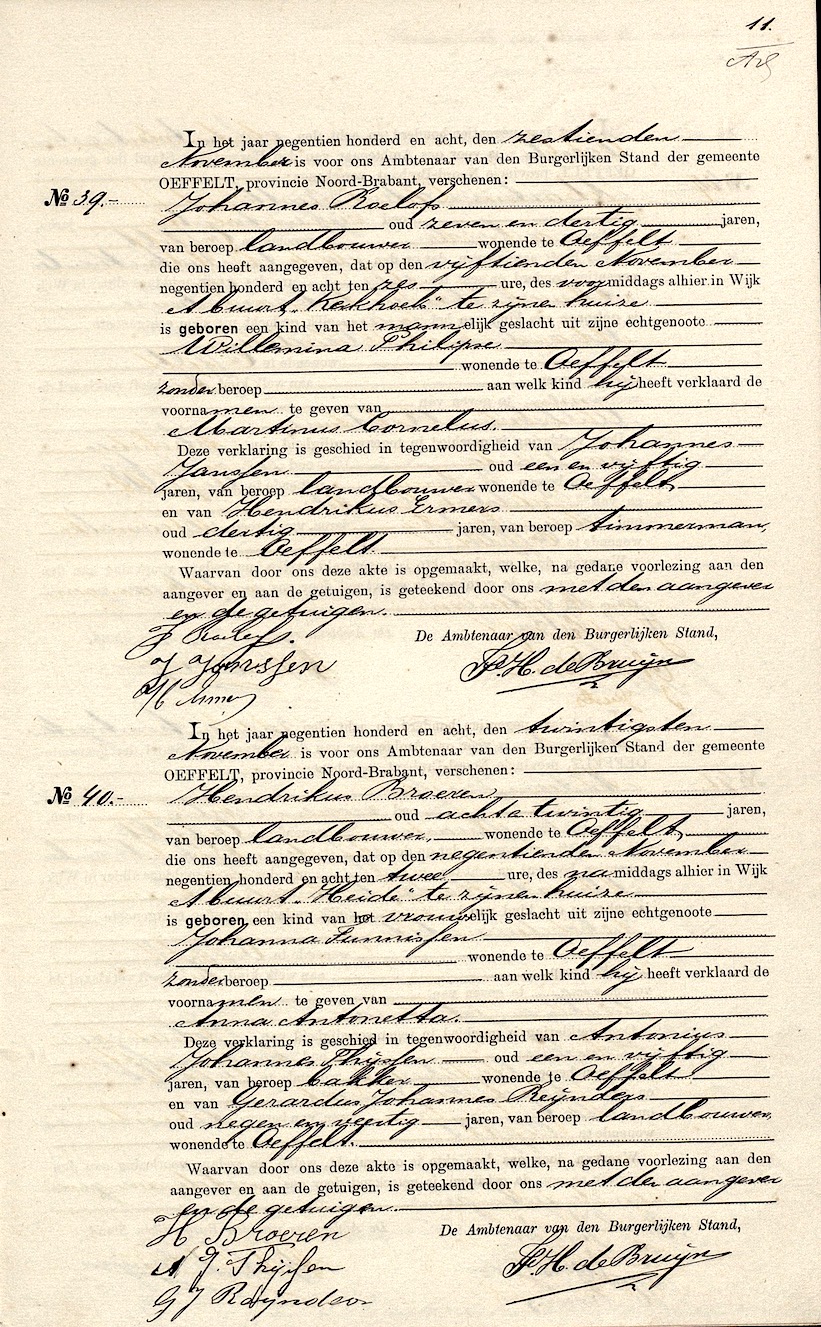 11.
In het jaar negentien honderd en acht, den zestienden
November is voor ons Ambtenaar van den Burgerlijken Stand der gemeente
OEFFELT, provincie Noord-Brabant, verschenen:
No 39.- Johannes Roelofs
oud zeven en dertig jaren,
van beroep landbouwer wonende te Oeffelt
die ons heeft aangegeven, dat op den vijftienden November
negentien honderd en acht ten zes ure, des voormiddags alhier in Wijk
A buurt „Kerkhoek" te zijnen huize
is geboren een kind van het mannelijk geslacht uit zijne echtgenoote
Willemina Philipse
wonende te Oeffelt
zonder beroep aan welk kind hij heeft verklaard de
voornamen te geven van
Martinus Cornelus.
Deze verklaring is geschied in tegenwoordigheid van Johannes
Janssen oud een en vijftig
jaren, van beroep landbouwer wonende te Oeffelt,
en van Hendrikus Ermers
oud dertig jaren, van beroep timmerman,
wonende te Oeffelt.
Waarvan door ons deze akte is opgemaakt, welke, na gedane voorlezing aan den
aangever en aan de getuigen, is geteekend door ons met den aangever
en de getuigen.
De Ambtenaar van den Burgerlijken Stand,
J Roelofs.
J Janssen
H Ermers
F.H. de Bruijn
In het jaar negentien honderd en acht, den twintigsten
November is voor ons Ambtenaar van den Burgerlijken Stand der gemeente
OEFFELT, provincie Noord-Brabant, verschenen:
No 40.- Hendrikus Broeren
oud acht e twintig jaren,
van beroep landbouwer, wonende te Oeffelt,
die ons heeft aangegeven, dat op den negentienden November
negentien honderd en acht ten twee ure, des namiddags alhier in Wijk
A buurt „Heide" te zijnen huize
is geboren een kind van het vrouwelijk geslacht uit zijne echtgenoote
Johanna Tunnissen
wonende te Oeffelt
zonder beroep aan welk kind hij heeft verklaard de
voornamen te geven van
Anna Antonetta.
Deze verklaring is geschied in tegenwoordigheid van Antonius
Johannes Thijssen oud een en vijftig
jaren, van beroep bakker wonende te Oeffelt
en van Gerardus Johannes Reijnders
oud negen en veertig jaren, van beroep landbouwer,
wonende te Oeffelt.
Waarvan door ons deze akte is opgemaakt, welke, na gedane voorlezing aan den
aangever en aan de getuigen, is geteekend door ons met den aangever
en de getuigen.
De Ambtenaar van den Burgerlijken Stand,
H Broeren
A J. Thijssen
G J Reijnders
F.H. de Bruijn